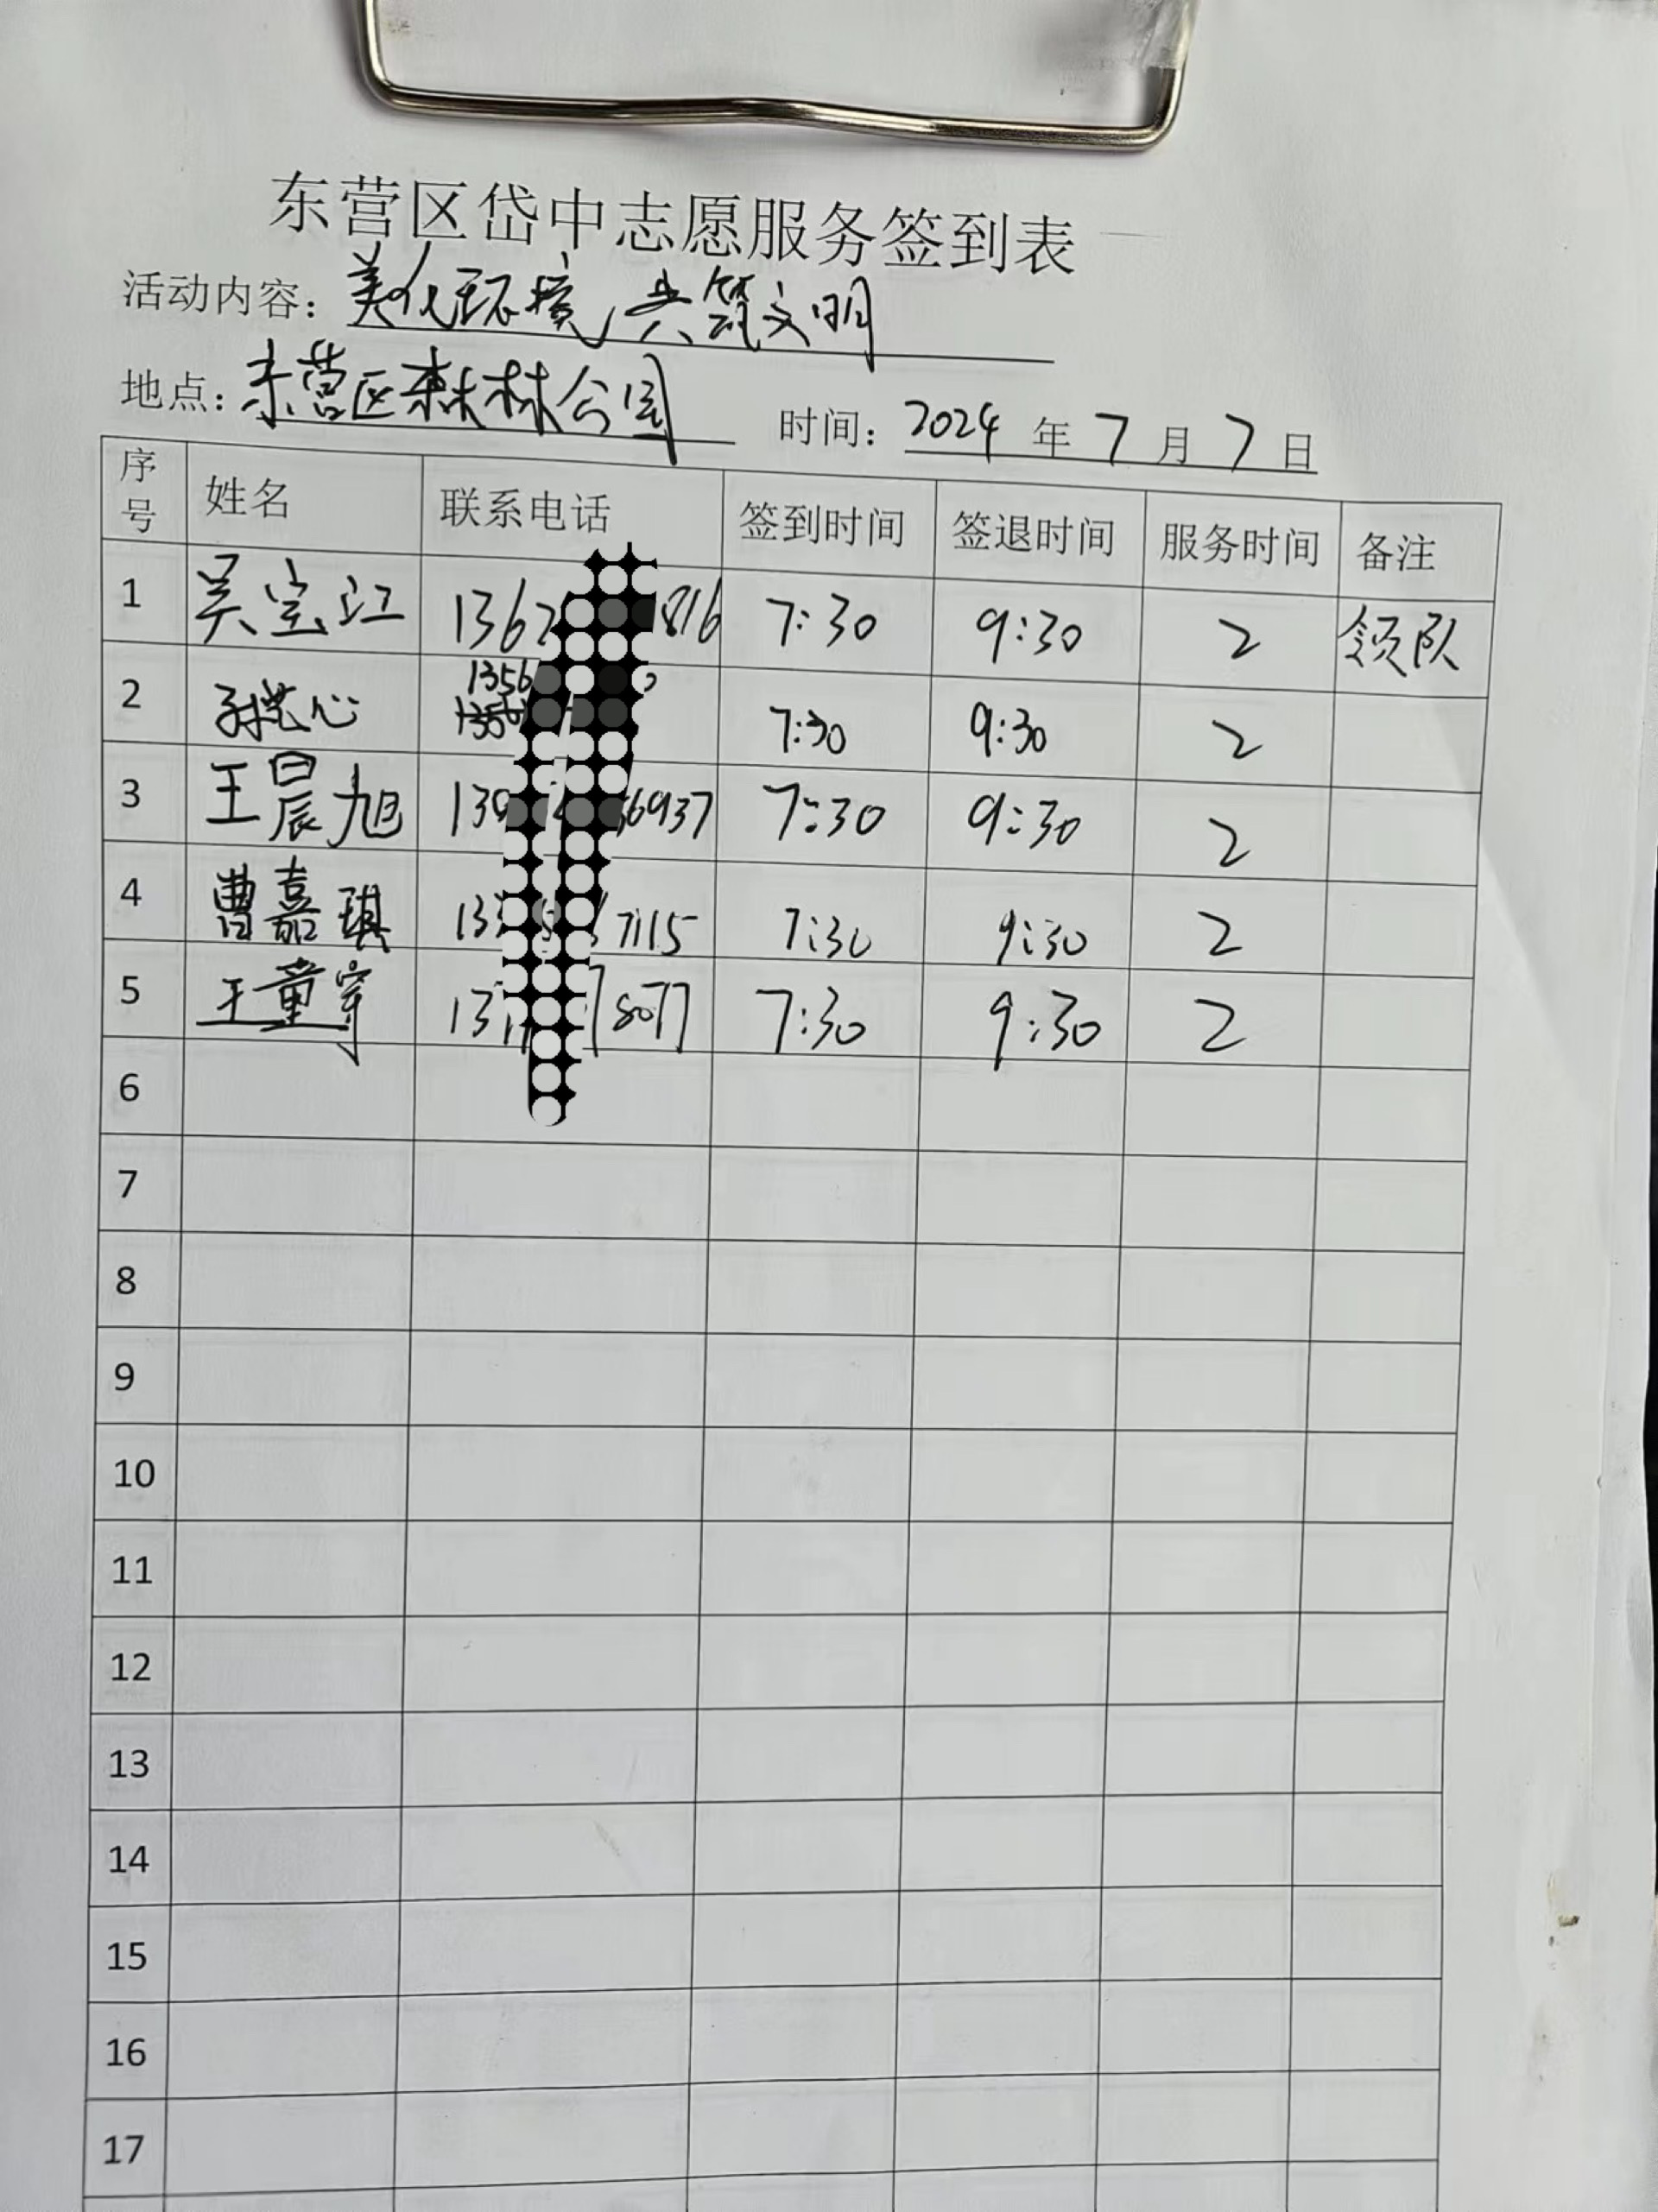 东营区岱中志愿服务签到表
活动内容：美化环境，共筑文明
地点：东营区森林公园 时间：2024 年 7 月 7 日
序号 姓名 联系电话 签到时间 签退时间 服务时间 备注
1 吴宝江 1362 816 7:30 9:30 2 领队
2 孙 心 1356 7:30 9:30 2
3 王晨旭 130 6937 7:30 9:30 2
4 曹嘉琪 13 7115 7:30 9:30 2
5 王童 13 8077 7:30 9:30 2
6
7
8
9
10
11
12
13
14
15
16
17